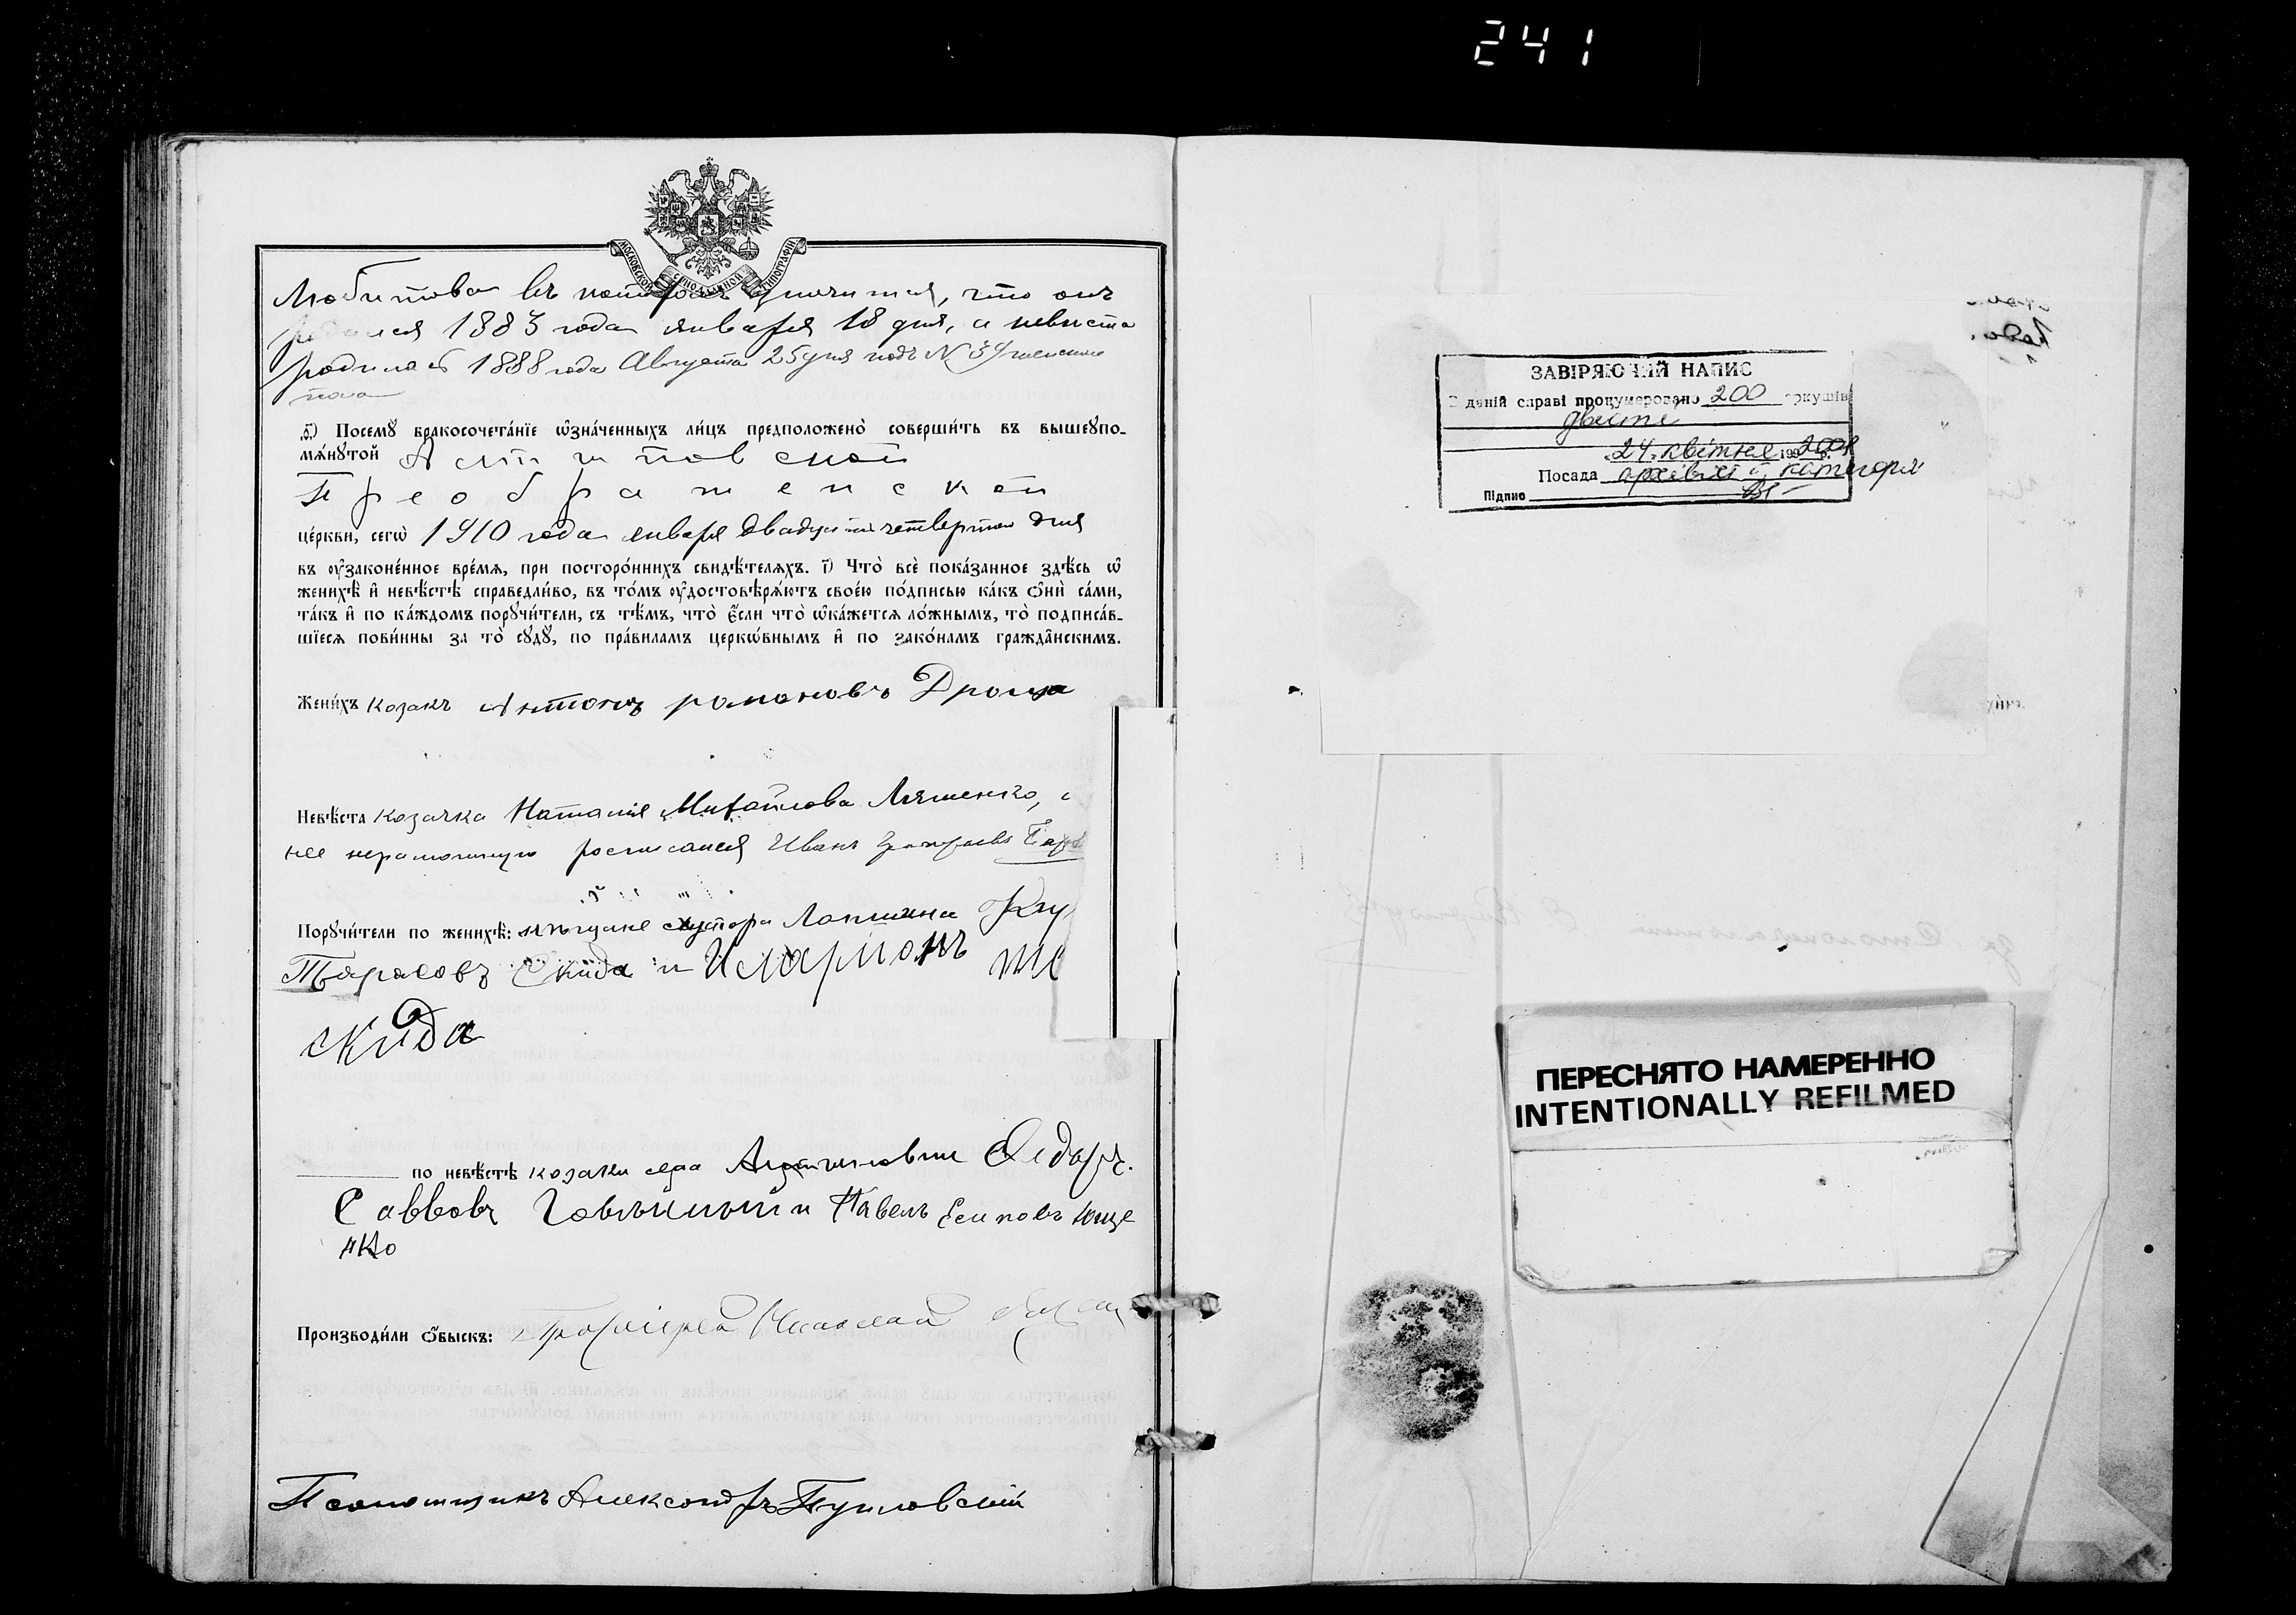 241
МОСКОВСКОЙ СИНОДАЛЬНОЙ ТИПОГРАФІИ
Любитова въ которой значится, что онъ
родился 1883 года января 18 дня, а невѣста
родилась 1888 года Августа 25 дня подъ № 34 женска
пола
ѕ҃) Посемꙋ̀ бракосочета́нїе ѡ҆зна́ченныхъ ли́цъ предположено̀ соверши́ть въ вышеꙋпо-
мѧ́нꙋтой
Преображенской
це́ркви, сегѡ̀ 1910 года января двадцать четвертаго дня
въ ᲂу҆зако́ненное вре́мѧ, при посторо́ннихъ свидѣ́телѧхъ. і҃) Что̀ всѐ пока́занное здѣ́сь ѡ҆
женихѣ̀ и҆ невѣ́стѣ справедли́во, въ то́мъ ᲂу҆достовѣрѧ́ютъ свое́ю по́дписью ка́къ ѻ҆нѝ са́ми,
та́къ и҆ по ка́ждомъ порꙋчи́тели, съ тѣ́мъ, что̀ є҆́сли что̀ ѡ҆ка́жетсѧ ло́жнымъ, то̀ подписа́в-
шїесѧ пови́нны за то̀ сꙋдꙋ̀, по пра́виламъ церкѡ́внымъ и҆ по зако́намъ гражда̂нскимъ.
Жени́хъ козакъ Антонъ романовъ Дроща
Невѣ́ста козачка Наталія Михайлова Ляшенко,
нее неграмотную росписался Иванъ Григорьевъ
Порꙋчи́тели по женихѣ̀: хутора Лопшина
Тарасовъ Скида и Иларіонъ
скида
по невѣ́стѣ козаки села Федоръ
Савовъ и Павелъ Есиповъ Юще
нко
Производи́ли ѻ҆́быскъ: Протоіерей Николай
Псаломщикъ Александръ Пуиловскій
ЗАВІРЯЮЧИЙ НАПИС
В даній справі пронумеровано 200 аркушів
двести
«24» квітня 199 2001 р.
Посада архівіст II категорії
Підпис
ПЕРЕСНЯТО НАМЕРЕННО
INTENTIONALLY REFILMED